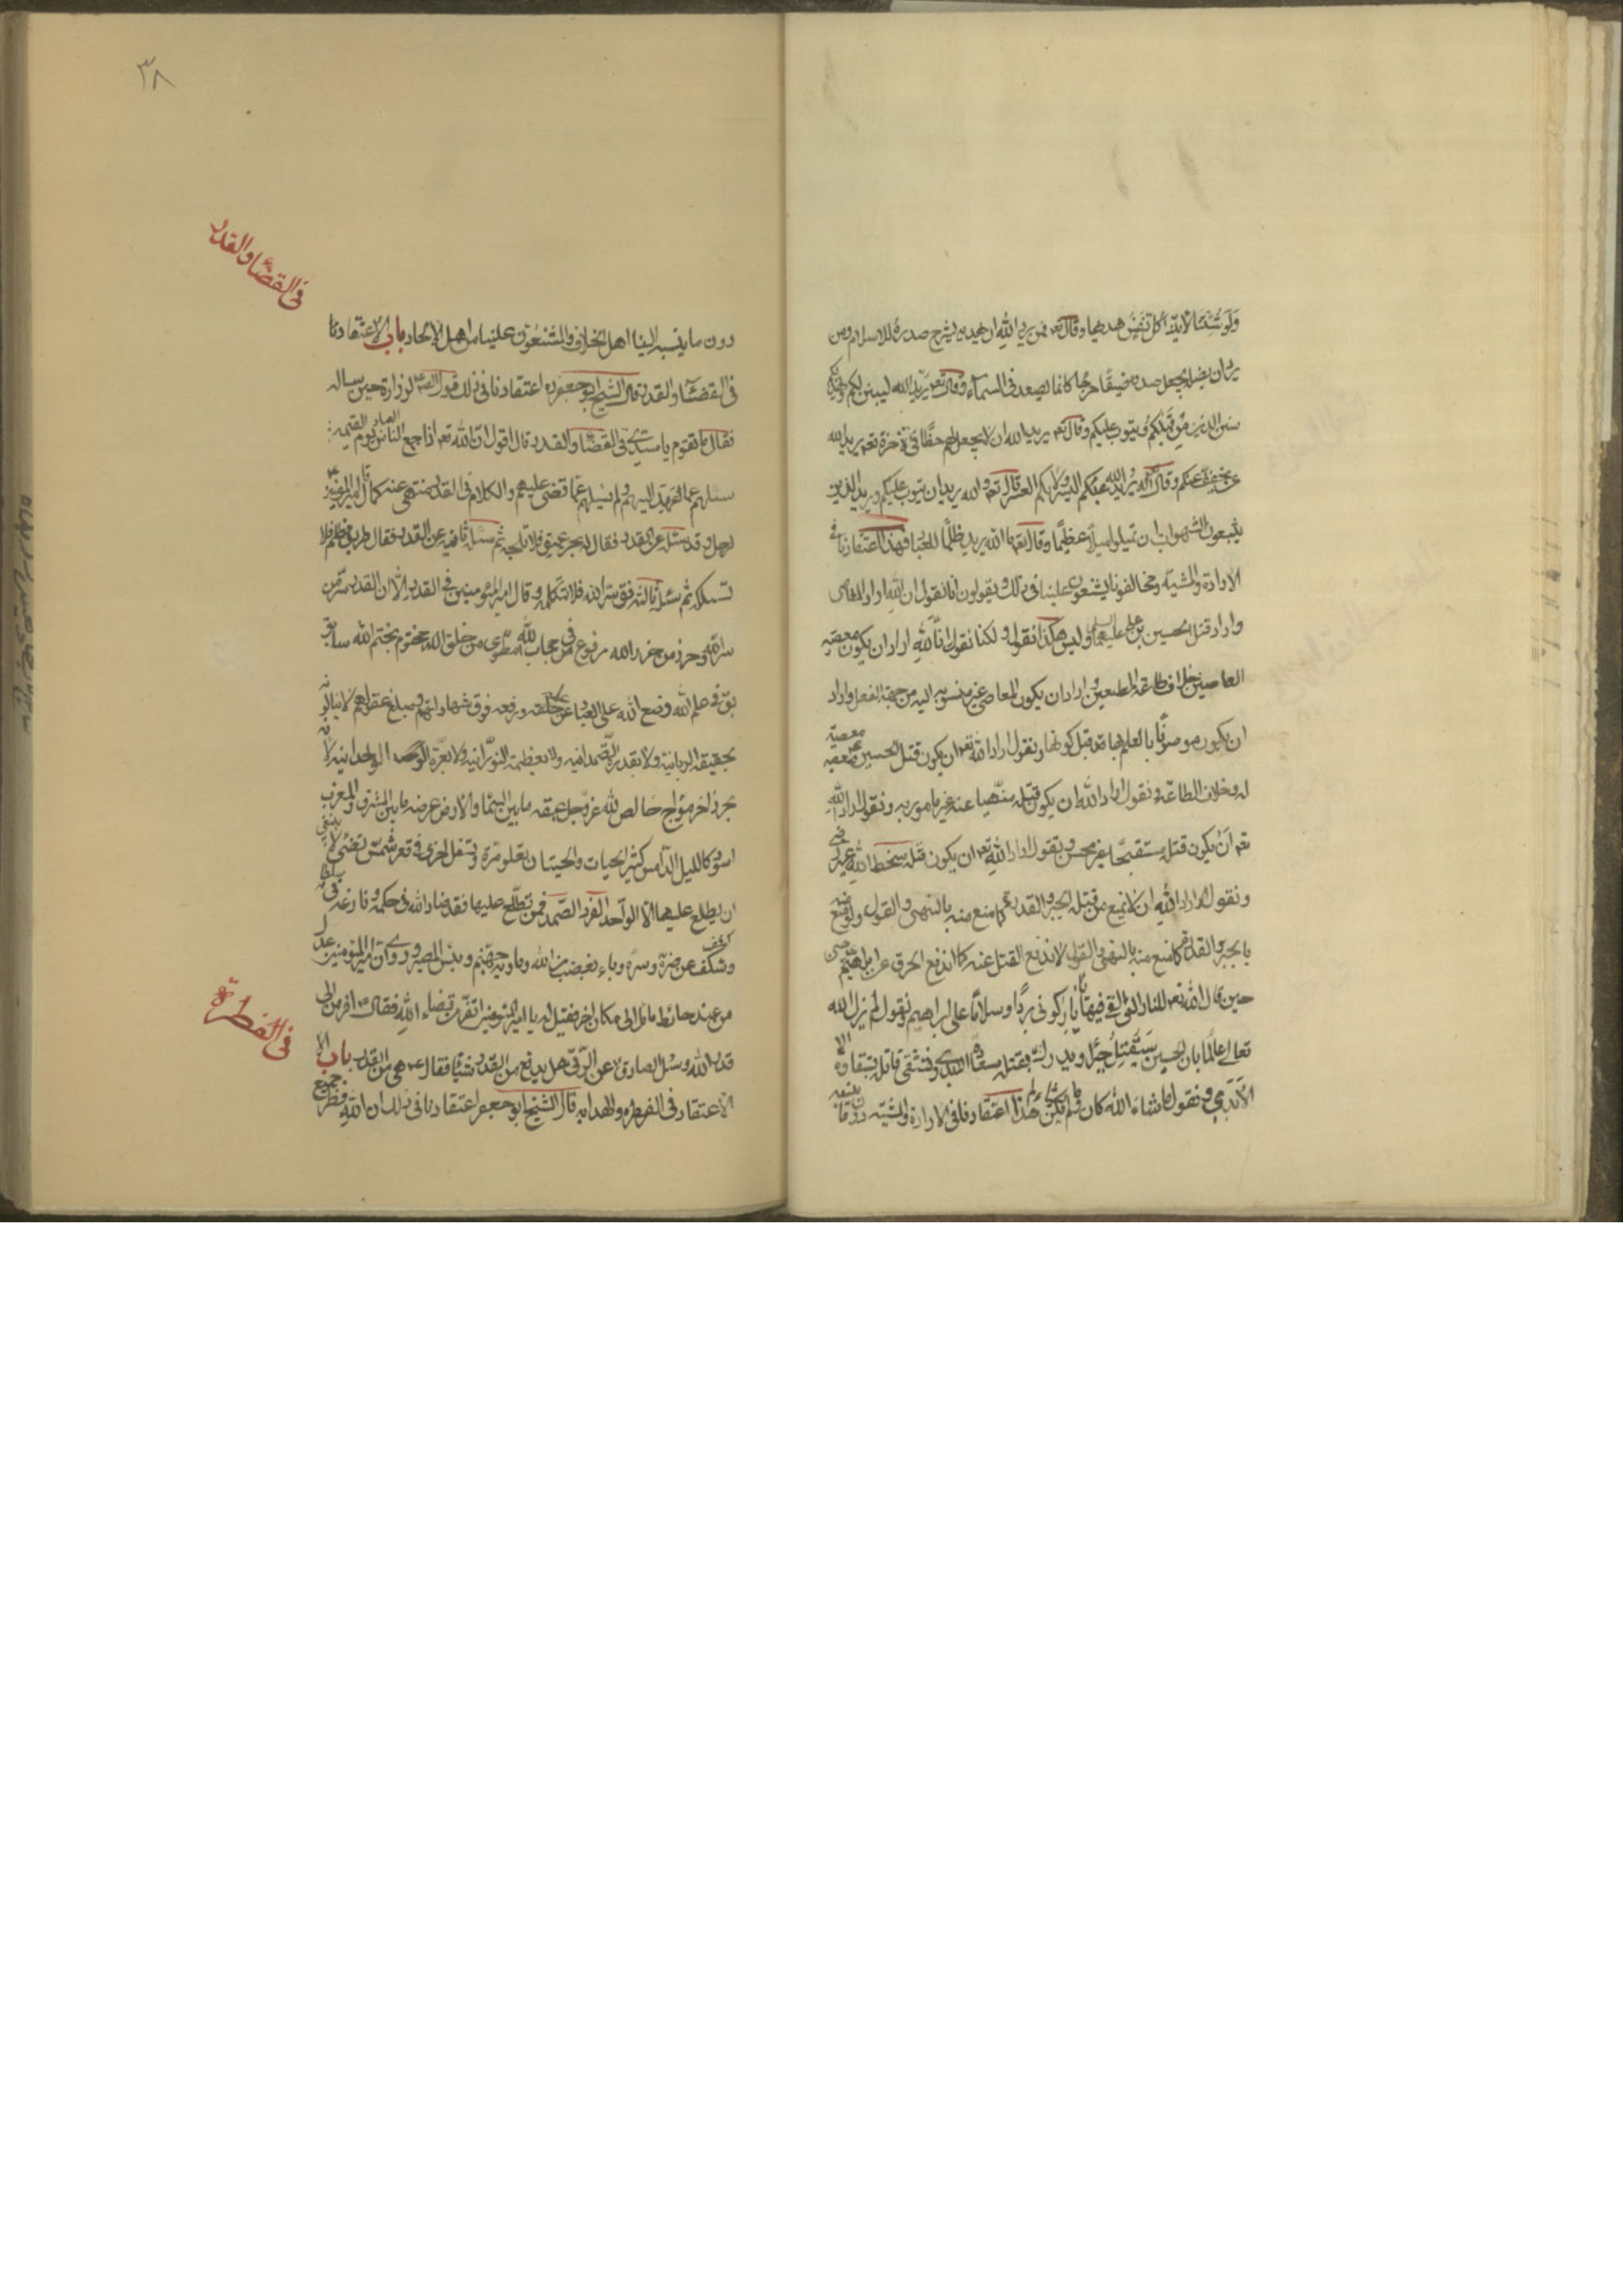 ولو شئنا لاتينا كل نفس هديها وقال تعه فمن يرد الله ان يهديه يشرح صدره للاسلام ومن
يرد ان يضله يجعل صدره ضيقا حرجا كانما يصعد في السماء وقال تعه يريد الله ليبين لكم ويهديكم
سنن الذين من قبلكم ويتوب عليكم وقال تعه يريد الله ان لا يجعل لهم حظا في الاخرة تعه يريد الله
ان يخفف عنكم وقال تعه يريد الله بكم اليسر ولا يريد بكم العسر وقال تعه والله يريد ان يتوب عليكم ويريد الذين
يتبعون الشهوات ان تميلوا ميلا عظيما وقال تعه وما الله يريد ظلما للعباد فهذا اعتقادنا في
الارادة والمشية ومخالفونا يشنعون علينا في ذلك ويقولون انا نقول ان الله اراد المعاصي
واراد قتل الحسين بن علي عليهما السلم وليس هكذا نقول ولكنا نقول ان الله اراد ان يكون معصية
العاصين خلاف طاعة المطيعين واراد ان يكون المعاصي غير منسوبة اليه من جهة الفعل واراد
ان يكون موصوفا بالعلم بها قبل كونها ونقول اراد الله تعه ان يكون قتل الحسين معصية
له وخلاف الطاعة ونقول اراد الله ان يكون قتله منهيا عنه غير مامور به ونقول اراد الله
تعه ان يكون قتله مستقبحا غير مستحسن ونقول اراد الله تعه ان يكون قتله سخطا لله غير رضى
ونقول اراد الله ان لا يمنع من قتله بالجبر والقدرة كما منع منه بالنهي والقول ولو منع منه
بالجبر والقدرة كما منع منه بالنهي والقول لاندفع القتل عنه كما اندفع الحرق عن ابراهيم
حين قال الله تعه للنار التي القي فيها يا نار كوني بردا وسلاما على ابراهيم ونقول لم يزل الله
تعالى عالما بان الحسين سيقتل جبرا ويدرك بقتله سعادة الابد ويشقى قاتله شقاوة
الابد ونقول ما شاء الله كان وما لم يشاء لم يكن هذا اعتقادنا في الارادة والمشية
٣٨
في القضاء والقدر
دون ما ينسبه الينا اهل الخلاف والمشنعون علينا من اهل الالحاد باب الاعتقادنا
في القضاء والقدر قال الشيخ ابو جعفر ره اعتقادنا في ذلك قول الصادق لزرارة حين ساله
فقال ما تقوم يا سيدي في القضاء والقدر قال اقول ان الله تعه اذا جمع العباد يوم القيمة
سئلهم عما عهد اليهم ولم يسئلهم عما قضى عليهم والكلام في القدر منهي عنه كما قال امير المؤمنين
لرجل وقد سئله عن القدر فقال له بحر عميق فلا تلجه ثم سئله ثانية عن القدر فقال طريق مظلم فلا
تسلكه ثم سئله ثالثة فقال سر الله فلا تتكلمه وقال امير المؤمنين في القدر الا ان القدر سر من
سر الله وحرز من حرز الله مرفوع في حجاب الله مطوي عن خلق الله مختوم بختم الله سابق
في علم الله وضع الله على العباد عن علمه ورفعه فوق شهاداتهم ومبلغ عقولهم لانهم لا ينالونه
بحقيقة الربانية ولا بقدرة الصمدانية ولا بعظمة النورانية ولا بعزة الوحدانية لانه
بحر زاخر مواج خالص لله عز وجل عمقه ما بين السماء والارض عرضه ما بين المشرق والمغرب
اسود كالليل الدامس كثير الحيات والحيتان يعلو مرة ويسفل اخرى في قعره شمس تضئ لا ينبغي
ان يطلع عليها الا الواحد الفرد الصمد فمن تطلع عليها فقد ضاد الله في حكمه ونازعه في سلطانه
وكشف عن ستره وسره وباء بغضب من الله وماويه جهنم وبئس المصير وروي ان امير المؤمنين عدل
من عند حائط مائل الى مكان اخر فقيل له يا امير المؤمنين اتفر من قضاء الله فقال افر من الى
قدر الله وسئل الصادق عن الرقي هل يدفع من القدر شيئا فقال هي من القدر باب
الاعتقاد في الفطرة والهداية قال الشيخ ابو جعفر اعتقادنا في ذلك ان الله فطر جميع
في الفطرة